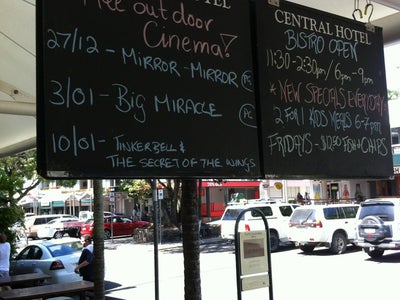 Free outdoor
Cinema!
27/12 - MIRROR-MIRROR PG
3/01 - BIG MIRACLE PG
10/01 - TINKERBELL &
THE SECRET OF THE WINGS
CENTRAL HOTEL
BISTRO OPEN
11:30-2:30pm/6pm-9pm
* NEW SPECIALS EVERYDAY
2 FOR 1 KIDS MEALS 6-7pm
FRIDAYS - $10.50 FISH & CHIPS